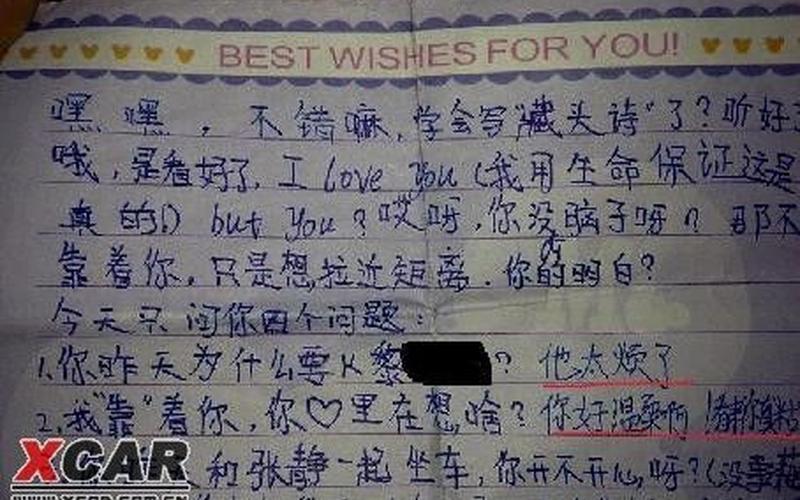 BEST WISHES FOR YOU!
嘿嘿，不错嘛，学会写"藏头诗"了？听好了
哦，是看好了，I love you（我用生命保证这是
真的！）but you？哎呀，你没脑子呀？那不
靠着你，只是想拉近距离，你的明白？
今天只问你四个问题：
1.你昨天为什么要K黎？他太烦了
2.我"靠"着你，你♡里在想啥？你好温柔啊！
和张静一起坐车，你开不开心呀？（没事
XCAR